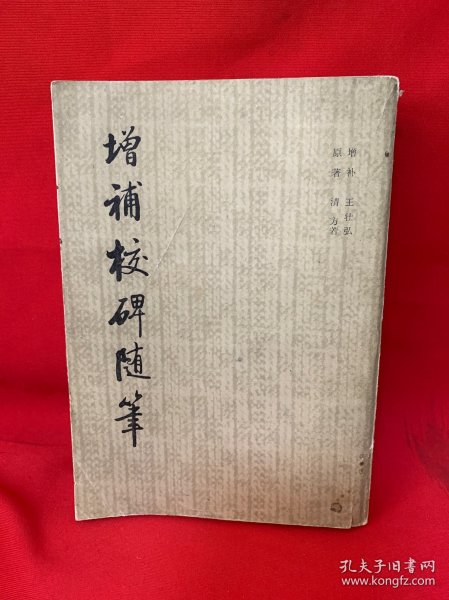 增補校碑随筆
增补 王壮弘
原著 清 方若
孔夫子旧书网
www.kongfz.com